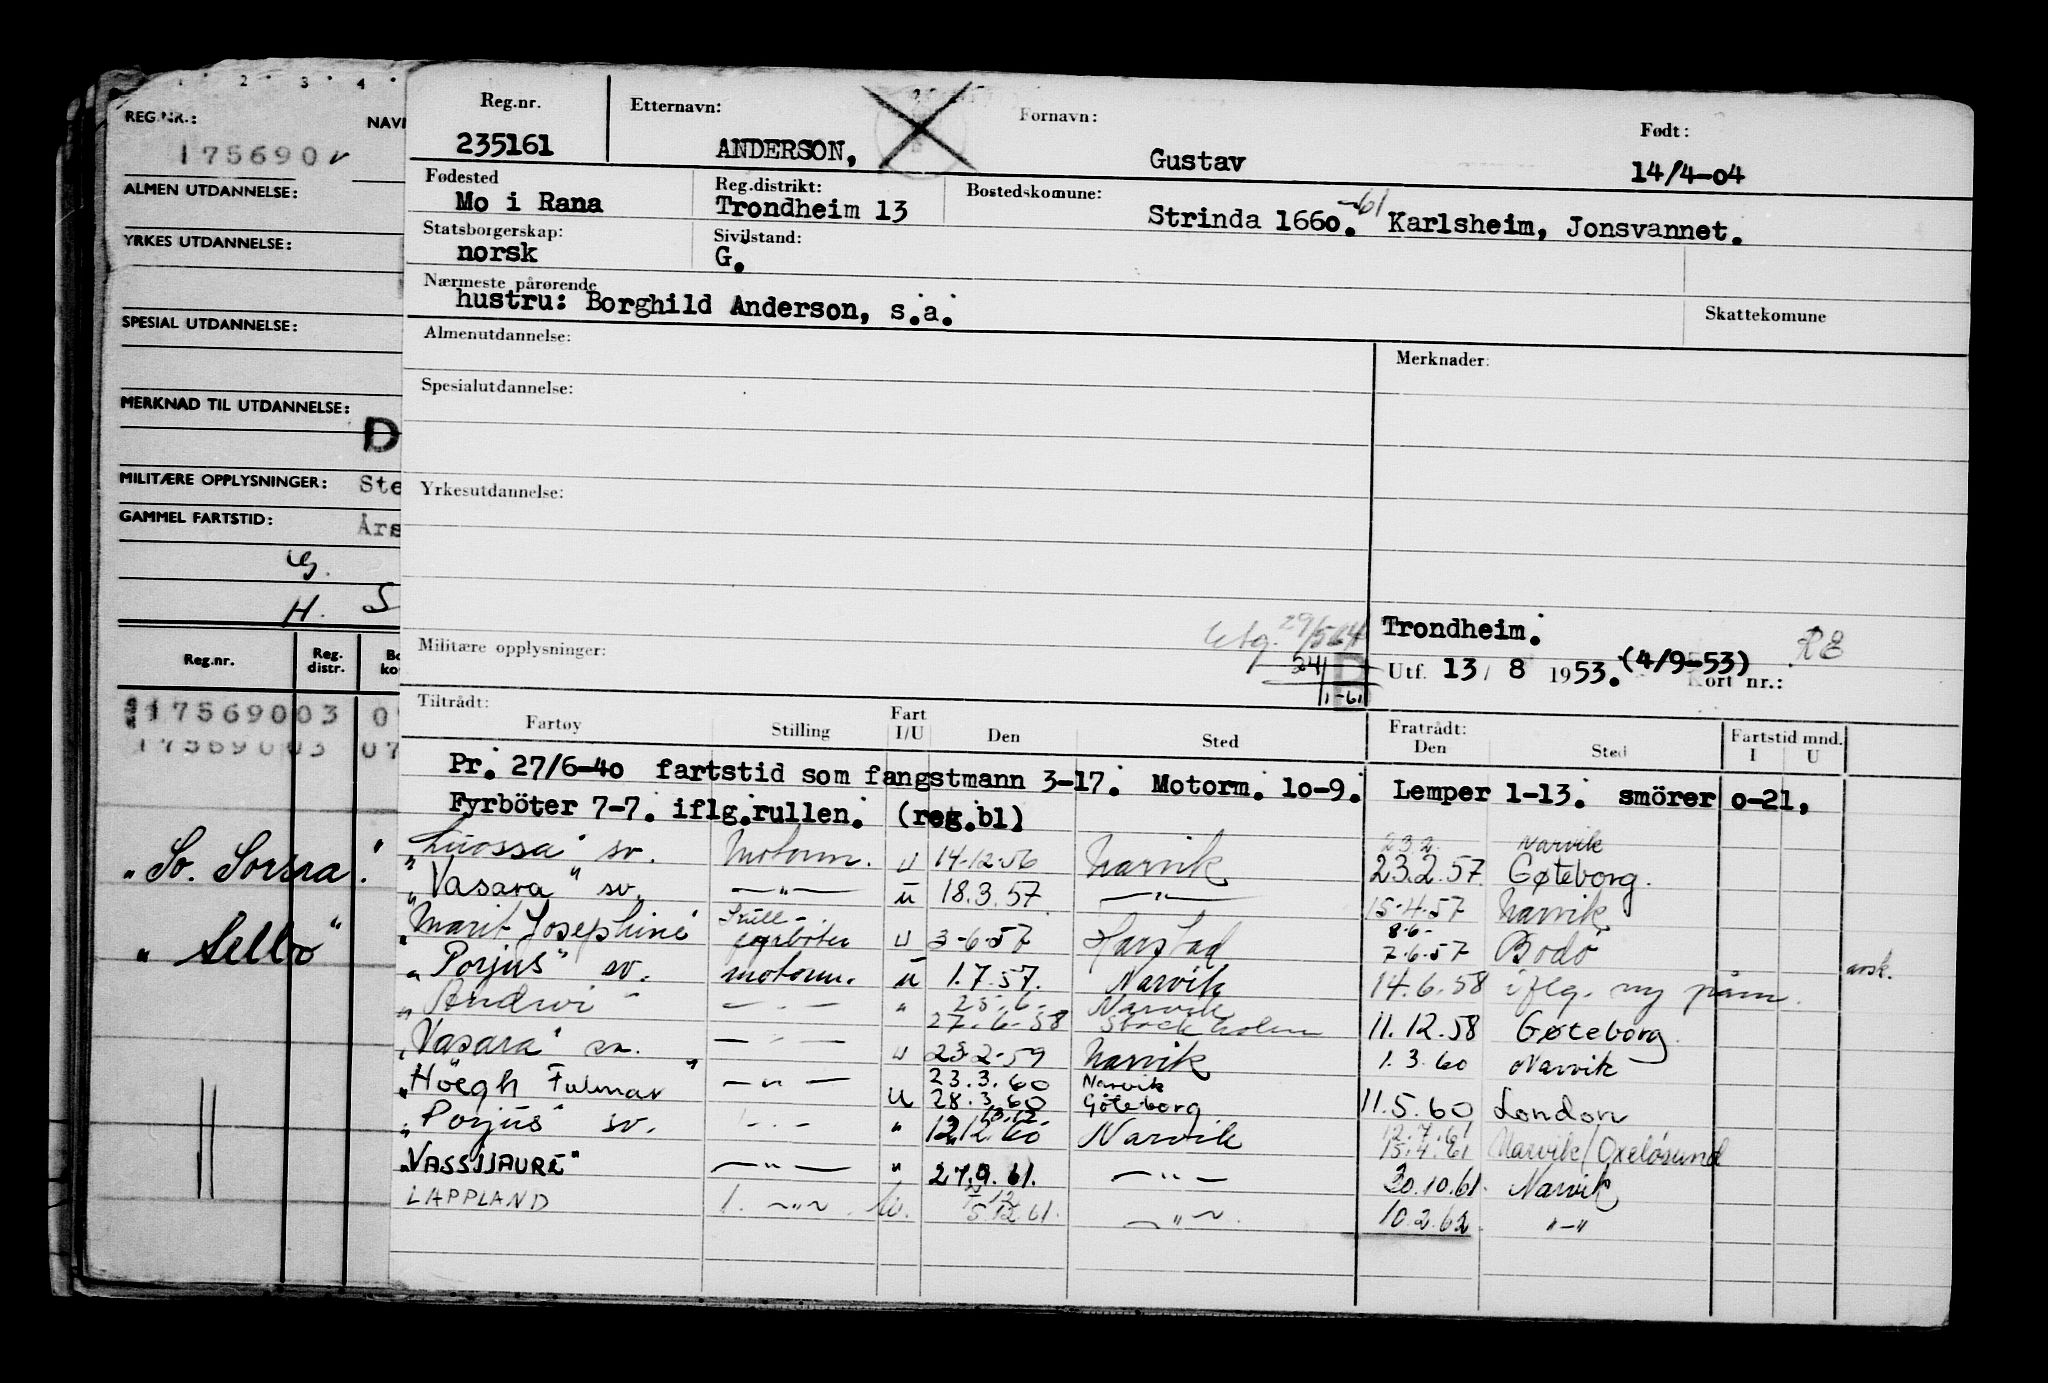 1 2 3 4
REG.NR.: NAV
175690 v
ALMEN UTDANNELSE:
YRKES UTDANNELSE:
SPESIAL UTDANNELSE:
MERKNAD TIL UTDANNELSE:
D
MILITÆRE OPPLYSNINGER: Ste
GAMMEL FARTSTID: Års
G.
H. S
Reg.nr. Reg. distr. Bo ko
17569003 0
17569003 07
"So. Sorsra."
"Sello"
Reg.nr. Etternavn: Fornavn: Født:
235161 ANDERSON, Gustav 14/4-04
Fødested Reg.distrikt: Bostedskomune:
Mo i Rana Trondheim 13 Strinda 1660. -61 Karlsheim, Jonsvannet.
Statsborgerskap: Sivilstand:
norsk G.
Nærmeste pårørende Skattekomune
hustru: Borghild Anderson, s.a.
Almenutdannelse: Merknader:
Spesialutdannelse:
Yrkesutdannelse:
Trondheim. RE
Militære opplysninger: Utf. 13/ 8 1953. (4/9-53) Kort nr.:
241
1-61
Tiltrådt: Fratrådt: Fartstid mnd.
Fartøy Stilling Fart I/U Den Sted Den Sted I U
Pr. 27/6-40 fartstid som fangstmann 3-17. Motorm. 10-9. Lemper 1-13. smörer 0-21,
Fyrböter 7-7. iflg.rullen. (reg.bl)
23.2. Narvik
"Luossa" sv. Motorm. u 14-12-56 Narvik 23.2.57. Gøteborg.
"Vasara" sv. —"— u 18.3.57 —"— 15.4.57 Narvik
8.6-
"Marit Josephine" fyrböter u 3-6-57 Harstad 7-6-57 Bodö
"Porjus" sv. motorm. u 1.7.57. Narvik 14.6.58 iflg. ny påm. avsk.
25.6. Narvik
"Andwi" —"— " 27.6.58 Stockholm 11.12.58 Gøteborg
"Vasara" sv. —"— u 23.2-59 Narvik 1.3.60 Narvik
23.3.60 Narvik
"Höegh Fulmar" —"— u 28.3.60 Göteborg 11.5.60 London
13.12. 12.7.61
"Porjus" sv. —"— " 12.12.60 Narvik 15.4.61 Narvik/Oxelösund
"VASSIJAURE" —"— " 27.9.61. —"— 30.10.61. Narvik
12
LAPPLAND 1. —"— u. 5.12.61. —"—. 10.2.62 "-"